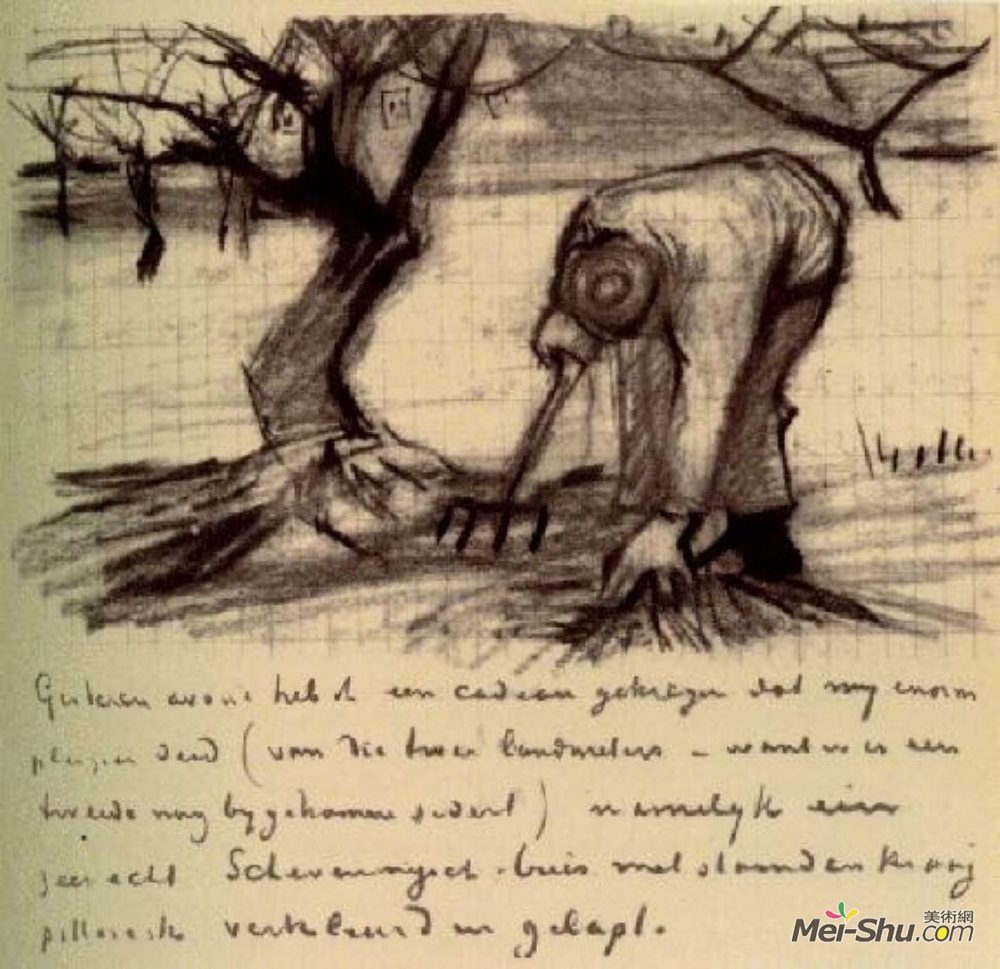 Gisteren avond heb ik een cadeau gekregen dat my enorm
plezier deed (van die twee landmeters – want er is een
tweede nog bygekomen sedert) namelyk een
zeer echt Scheveningsch buis met staanden kraag
pittoresk verkleurd en gelapt.
Mei-Shu.com
美術網